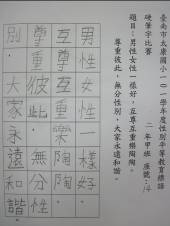 臺南市太康國小一○一學年度性別平等教育標語
硬筆字比賽
二年甲班 座號:14
題目:男性女性一樣好,互尊互重樂陶陶。
尊重彼此,無分性別,大家永遠和諧。
男性女性一樣好,
互尊互重樂陶陶。
尊重彼此,無分性
別,大家永遠和諧